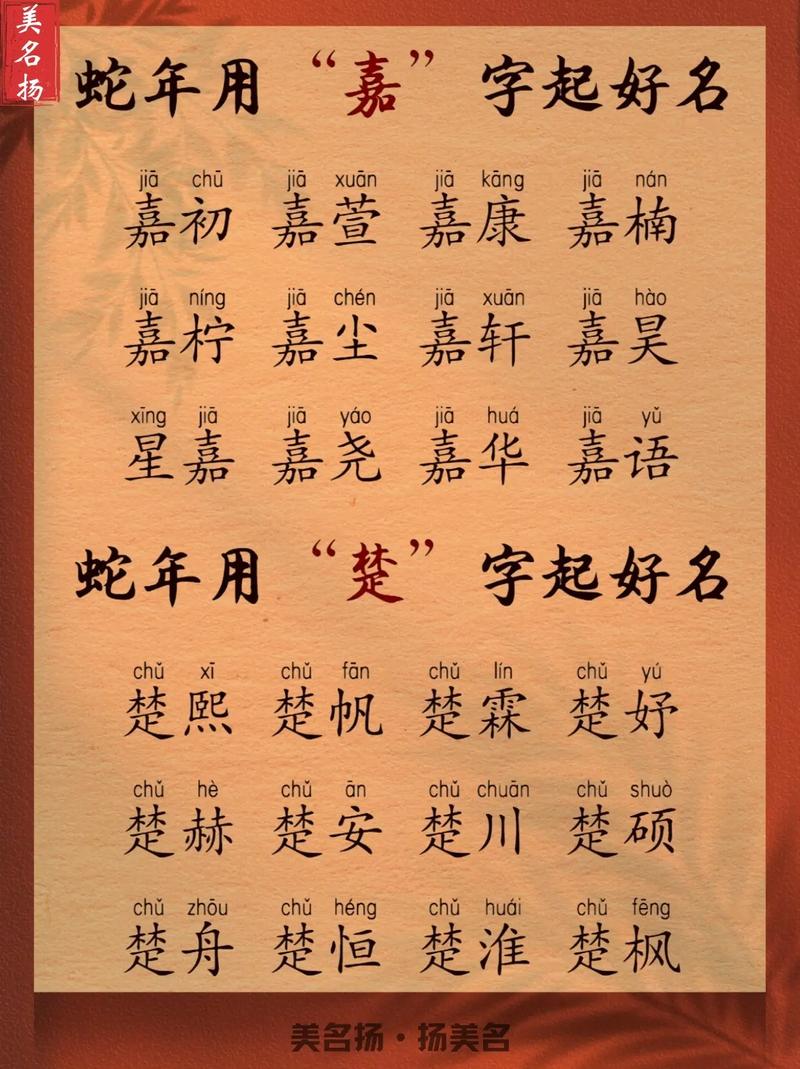 美名扬
蛇年用“嘉”字起好名
jiā chū jiā xuān jiā kāng jiā nán
嘉初 嘉萱 嘉康 嘉楠
jiā níng jiā chén jiā xuān jiā hào
嘉柠 嘉尘 嘉轩 嘉昊
xīng jiā jiā yáo jiā huá jiā yǔ
星嘉 嘉尧 嘉华 嘉语
蛇年用“楚”字起好名
chǔ xī chǔ fān chǔ lín chǔ yú
楚熙 楚帆 楚霖 楚妤
chǔ hè chǔ ān chǔ chuān chǔ shuò
楚赫 楚安 楚川 楚硕
chǔ zhōu chǔ héng chǔ huái chǔ fēng
楚舟 楚恒 楚淮 楚枫
美名扬·扬美名